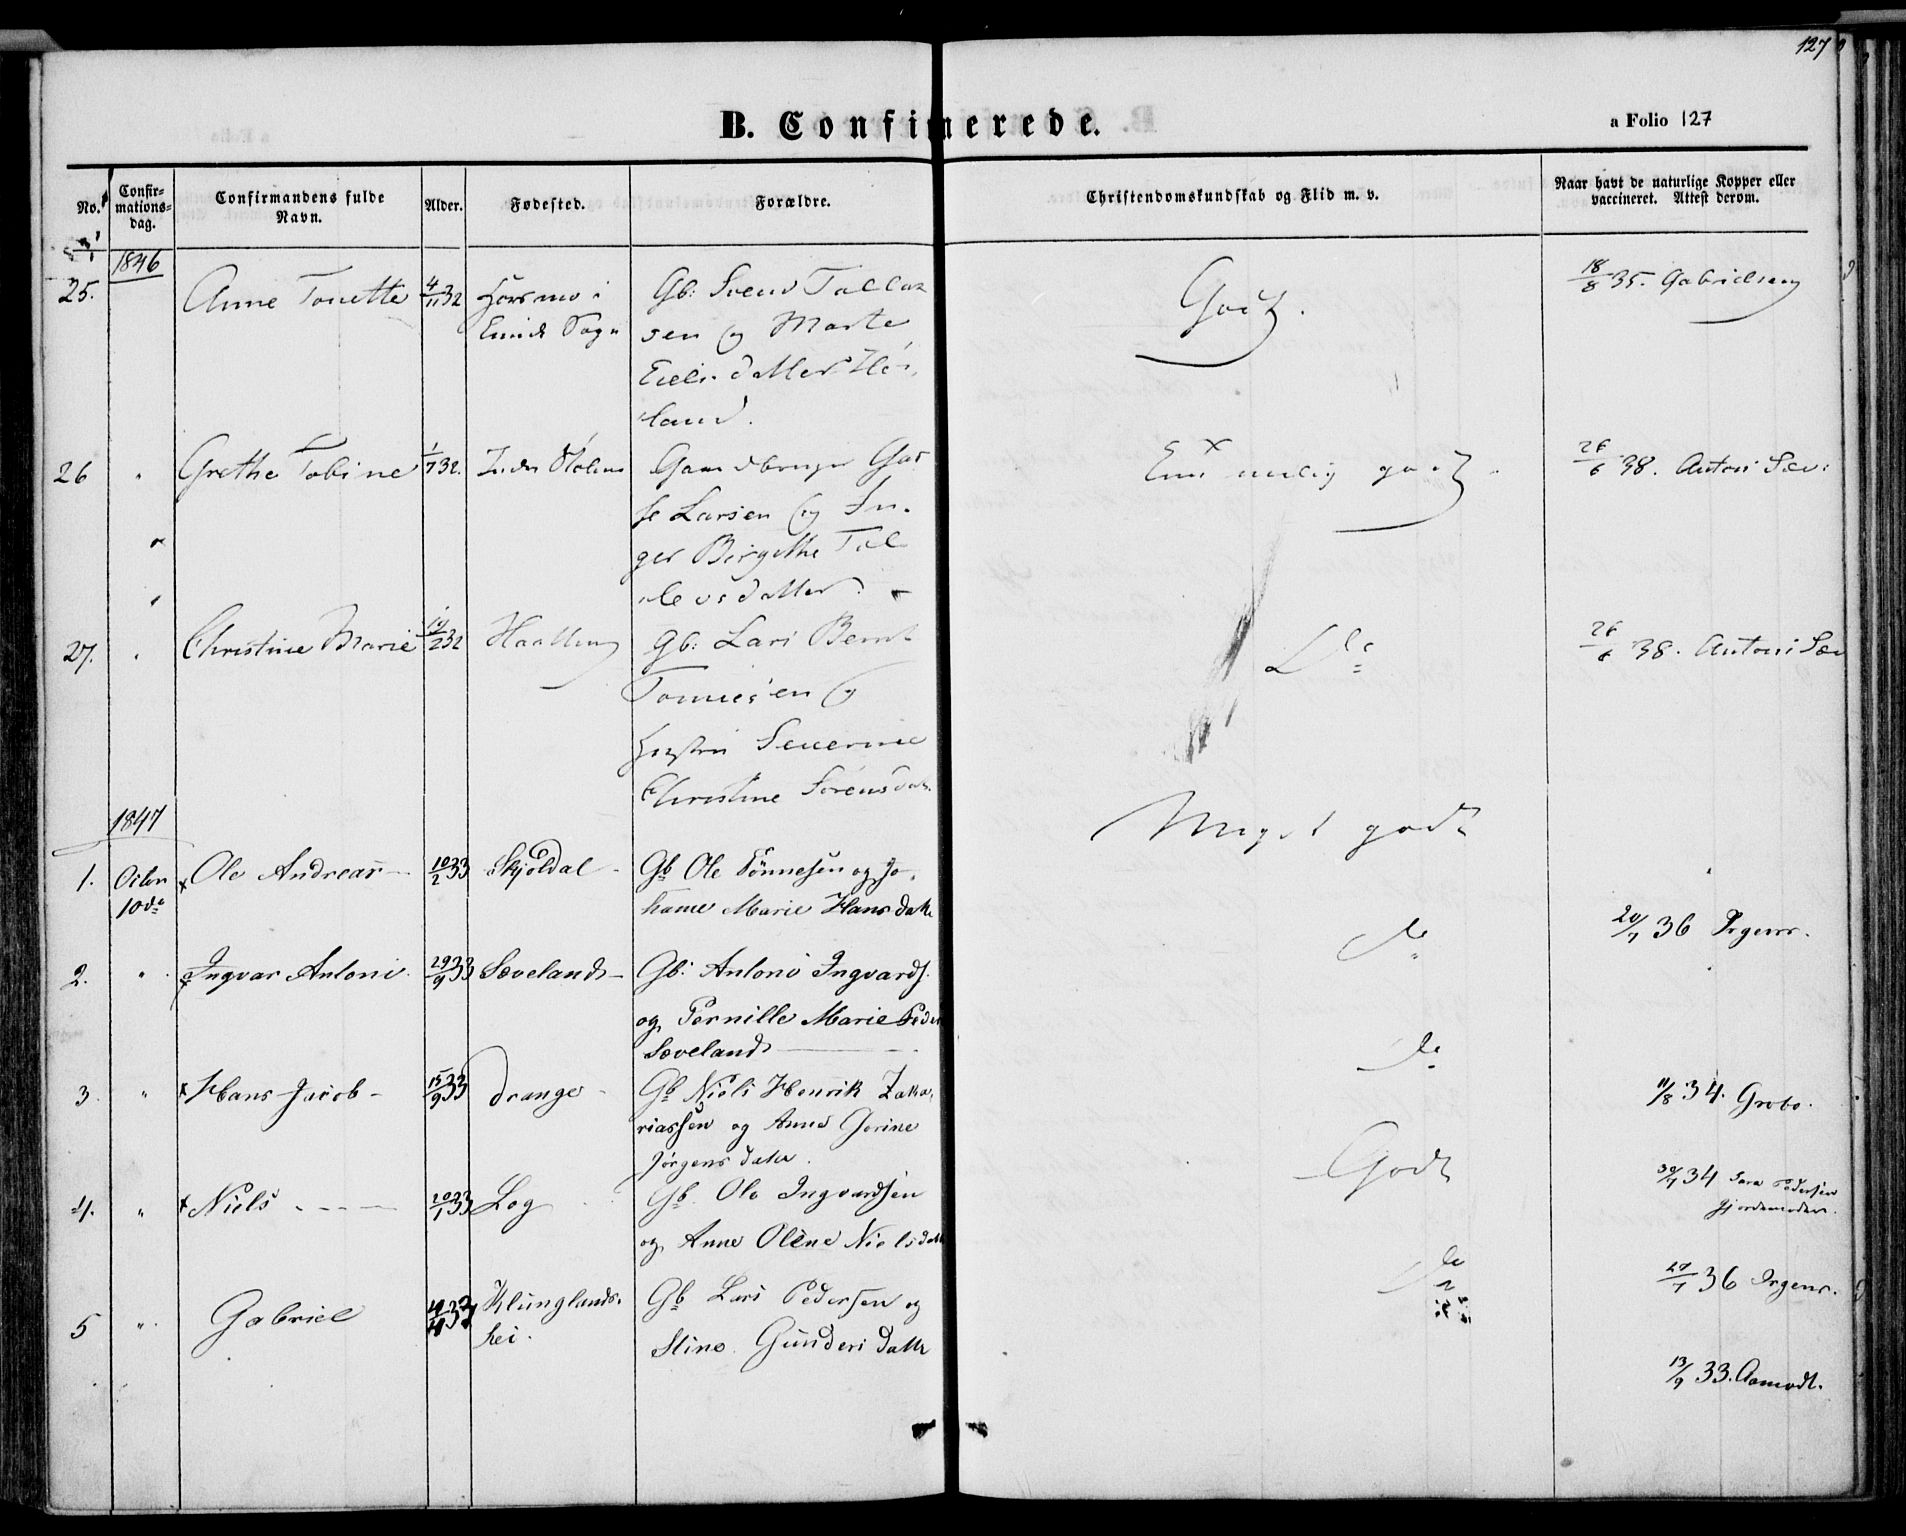 127
B. Confirmerede.
a Folio 127
No.
Confir-
mations-
dag.
Confirmandens fulde
Navn.
Alder.
Fødested.
Forældre.
Christendomskundskab og Flid m. v.
Naar havt de naturlige Kopper eller
vaccineret. Attest derom.
1846
25. Anne Tonette 4/11 32 i Gb: Svend Tallak
Sogn sen og Marte
datter
land.
Godt.
18/8 35. Gabrielsen
26 " Grethe Tobine 1/7 32. Gaardbruger
Larsen og In-
ger Birgithe Tal
levsdatter.
godt
26/6 38. Antoni Sæv:
27. " Christine Marie 19/2 32 Gb: Lars Bernt
Tonnesen og
Hustru Severine
Christine Sørensdatr.
Do
26/6 38. Antoni Sæv
1847
1. 10de Ole Andreas 10/2 33 Skjoldal Gb Ole Tønnesen og Jo-
hanne Marie Hansdattr
Meget godt
20/7 36 Irgens.
2. " Ingvar Antoni 29/9 33 Sæveland Gb: Antoni Ingvards.
og Pernille Marie Peder
Sæveland
do
11/8 34. Grobo.
3. " Hans Jacob 15/9 33 Drange Gb Niels Henrik Zaka-
riassen og Anne Gorine
Jørgensdattr.
do
30/7 34 Sara Pedersen
Gjordemoder.
4. " Niels 20/1 33 Log Gb. Ole Ingvardsen
og Anne Olene Nielsdattr
Godt
20/7 36 Irgens.
5 " Gabriel 33 Klunglands-
hei.
Gb Lars Pedersen og
Stine Gundersdattr
do
13/9 33. Aamodt.